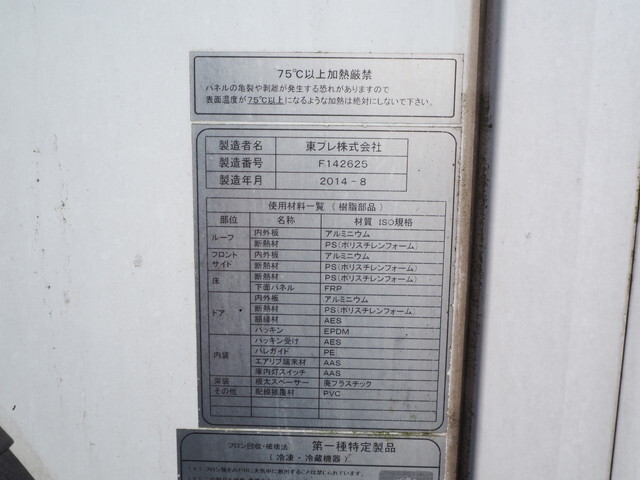 75℃以上加熱厳禁
パネルの亀裂や剥離が発生する恐れがありますので
表面温度が75℃以上になるような加熱は絶対にしないで下さい。
製造者名 東プレ株式会社
製造番号 F142625
製造年月 2014-8
使用材料一覧（樹脂部品）
部位 名称 材質 ISO規格
ルーフ 内外板 アルミニウム
断熱材 PS(ポリスチレンフォーム)
フロント サイド 内外板 アルミニウム
断熱材 PS(ポリスチレンフォーム)
床 断熱材 PS(ポリスチレンフォーム)
下面パネル FRP
ドア 内外板 アルミニウム
断熱材 PS(ポリスチレンフォーム)
額縁材 AES
パッキン EPDM
内装 パッキン受け AES
バレガイド PE
エアリブ端末材 AAS
庫内灯スイッチ AAS
突装 根太スペーサー 廃プラスチック
その他 配線被覆材 PVC
フロン回収・破壊法 第一種特定製品
(冷凍・冷蔵機器)